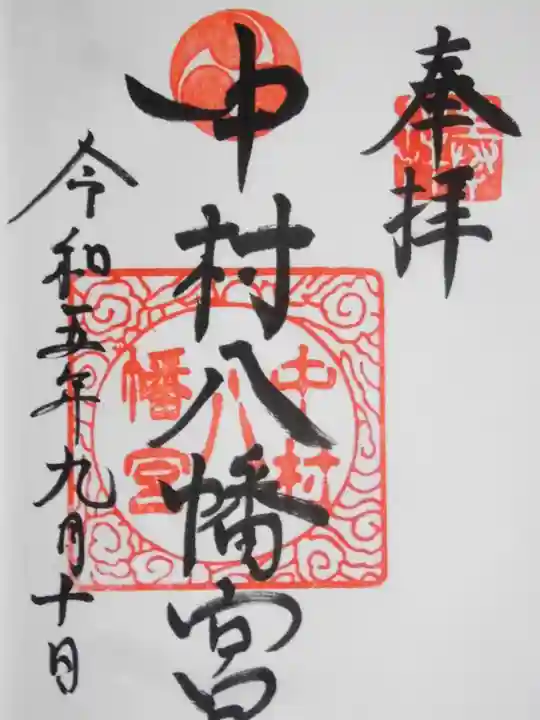 奉拝
中村八幡宮
中村
八
幡宮
令和五年九月十日